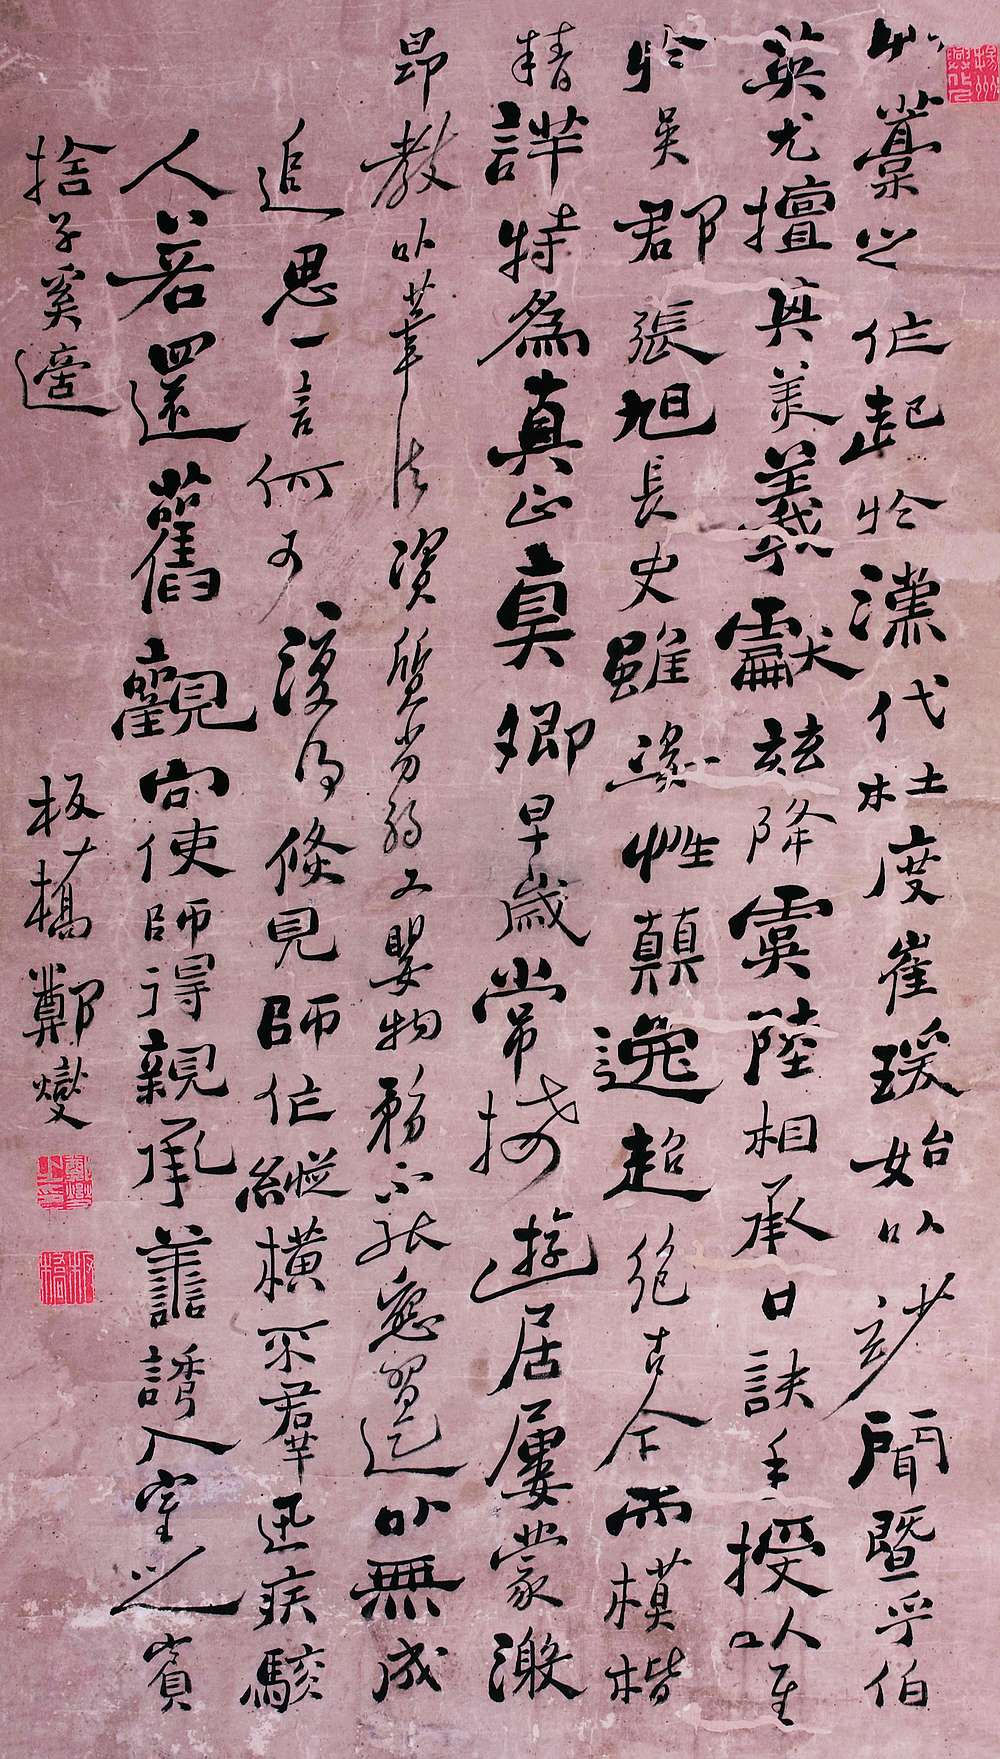 艸藁之作起於漢代杜度崔瑗始以妙聞暨乎伯
英尤擅其美羲獻玆降虞陸相承口訣手授以至
於吳郡張旭長史雖姿性顛逸超絕古今而模楷
精詳特為真正真卿早歲常接遊居屢蒙激
昂教以筆法資質劣弱又嬰物務不能懇習迄以無成
追思一言何可復得倏見師作縱橫不羣迅疾駭
人若還舊觀向使師得親承善誘入室之賓
捨子奚適
板橋鄭燮
鄭燮之印
板橋